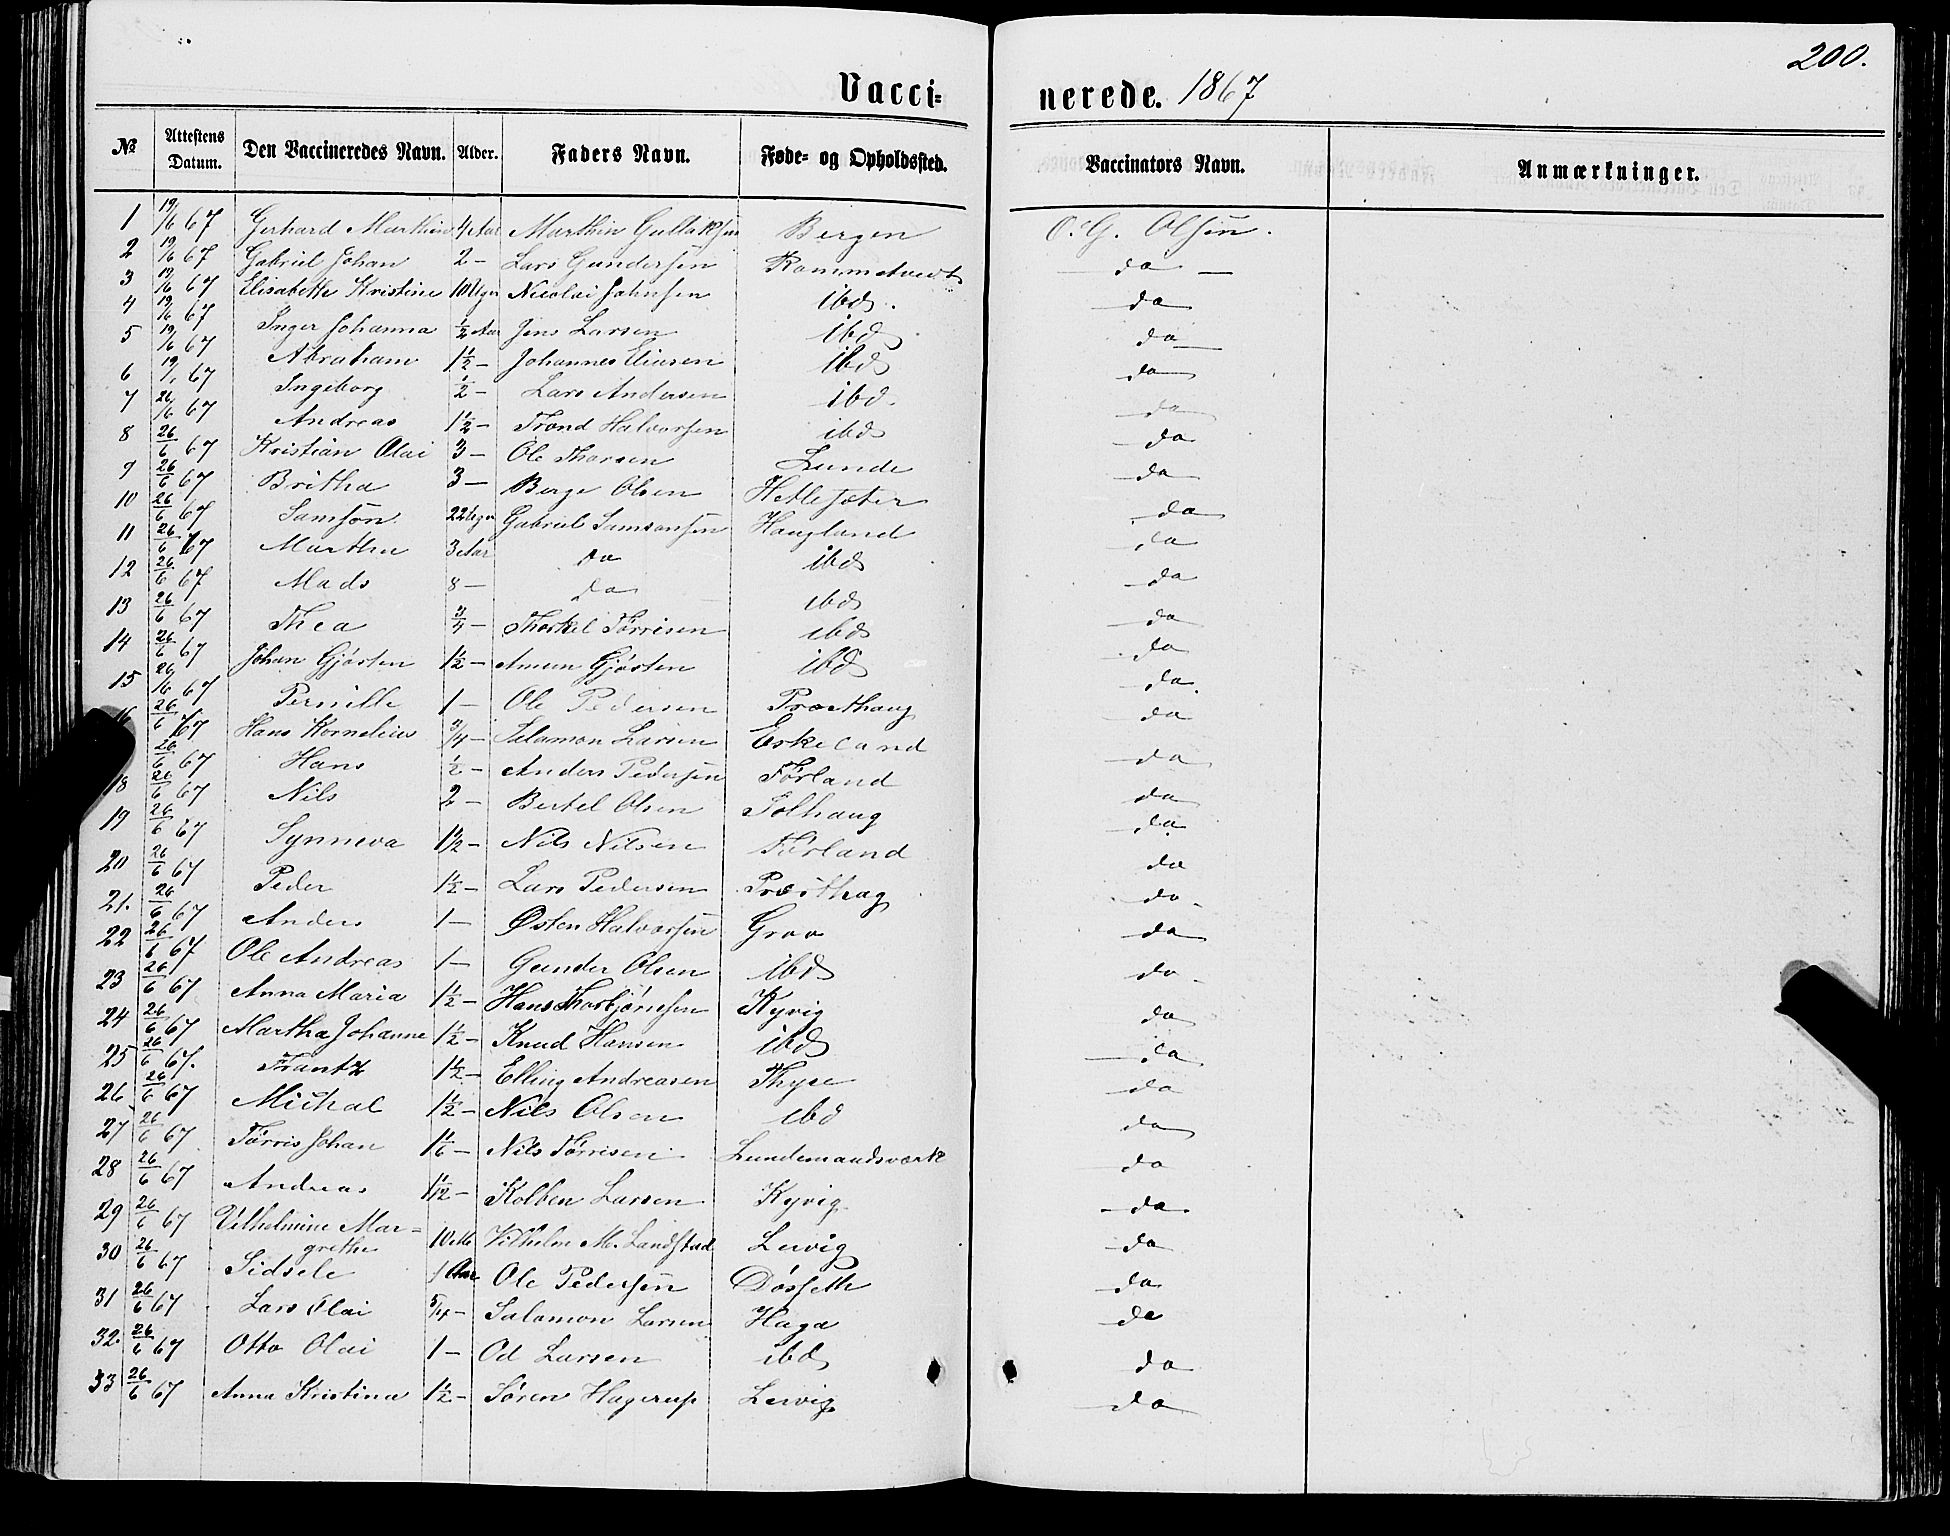 200.
Vacci=nerede. 1867
№ Attestens Datum. Den Vaccineredes Navn. Alder. Faders Navn. Føde- og Opholdssted. Vaccinators Navn. Anmærkninger.
1 19/6 67 Gerhard Marthin 4 Aar Marthin Gullaksen Bergen O. G. Olsen.
2 19/6 67 Gabriel Johan 2 – Lars Gundersen Rommetvedt do –
3 19/6 67 Elisabeth Kristine 10 Uger Nicolai Johnsen ibd. do
4 19/6 67 Inger Johanna ½ Aar Jens Larsen ibd do
5 19/6 67 Abraham 1½ – Johannes Eliasen ibd do
6 19/6 67 Ingeborg ½ – Lars Andersen ibd. do
7 26/6 67 Andreas 1½ – Trond Halvorsen ibd do
8 26/6 67 Kristian Olai 3 – Ole Thorsen Lunde do
9 26/6 67 Britha 3 – Berge Olsen Hetlesæter do
10 26/6 67 Samson 22 Uger Gabriel Samsonsen Haugland do
11 26/6 67 Martha 3 Aar do ibd do
12 26/6 67 Mads 8 – do ibd do
13 26/6 67 Thea 3/4 – Thorkel Tørrisen ibd do
14 26/6 67 Johan Gjøsten 1½ – Amun Gjøsten ibd do
15 26/6 67 Pernille 1 – Ole Pedersen Præsthaug do.
16 26/6 67 Hans Kornelius 3/4 – Salamon Larsen Eskeland do
26/6 67 Hans ½ – Anders Pedersen Førland do
18 26/6 67 Nils 2 – Bertel Olsen Solhaug do
19 26/6 67 Synneva 1½ – Nils Nilsen Førland do
20 26/6 67 Peder 1½ – Lars Pedersen Præsthag do
21. 26/6 67 Anders 1 – Østen Halvorsen Grov do.
22 26/6 67 Ole Andreas 1 – Gunder Olsen ibd do
23 26/6 67 Anna Maria 1½ – Hans Thorbjørnsen Kyvig do
24 26/6 67 Martha Johanne 1½ – Knud Hansen ibd do
25 26/6 67. Frantz 1½ – Elling Andreasen Thyse do
26 26/6 67 Michal 1½ – Nils Olsen ibd do
27 26/6 67 Tørris Johan 1 1/6 – Nils Tørrisen Lundemandsværk do
28 26/6 67 Andreas 1 1/12 – Kolben Larsen Kyvig do
29 26/6 67 Vilhelmine Mar=
grethe 10 M Vilhelm M. Landstad Lervig do
30 26/6 67 Sidsele 1 Aar Ole Pedersen Døsseth do
31 26/6 67 Lars Olai 5/4 – Salamon Larsen Haga do
32. 26/6 67 Otto Olai 1 – Od Larsen ibd do
33 26/6 67 Anna Kristina 1½ – Søren Hagerup Lervig do